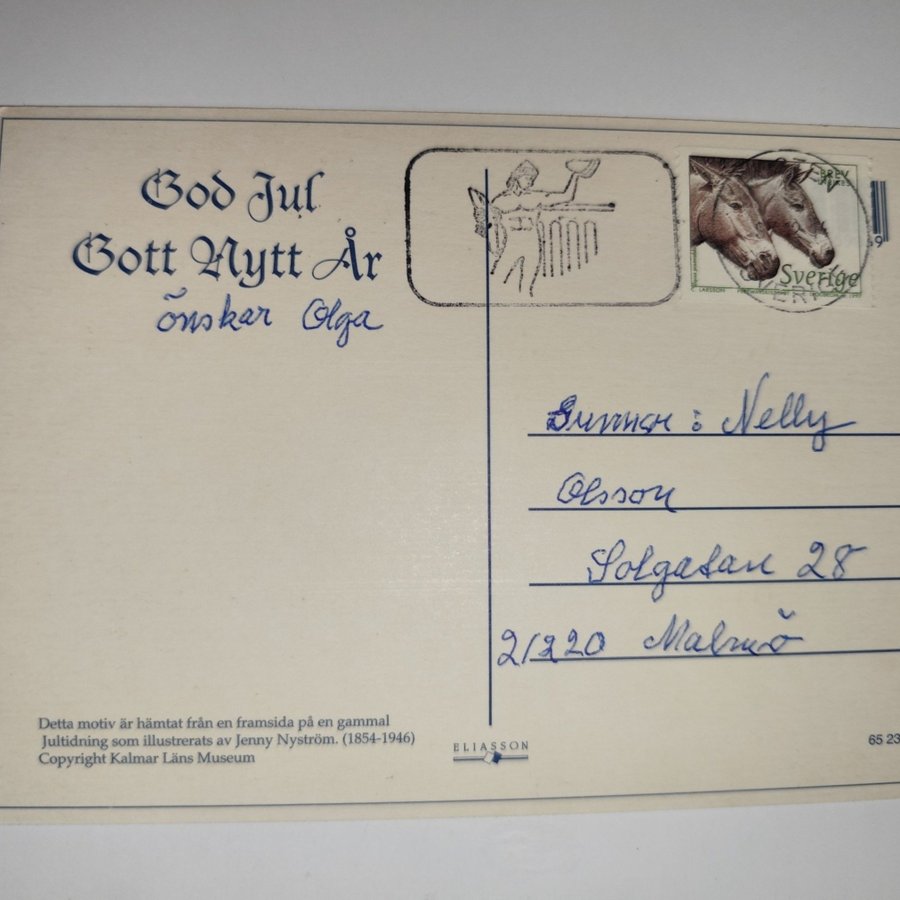 God Jul
Gott Nytt År
önskar Olga
BREV
Sverige
LARSSON
Gunnar o Nelly
Olsson
Solgatan 28
21220 Malmö
Detta motiv är hämtat från en framsida på en gammal
Jultidning som illustrerats av Jenny Nyström. (1854-1946)
Copyright Kalmar Läns Museum
ELIASSON
65 23